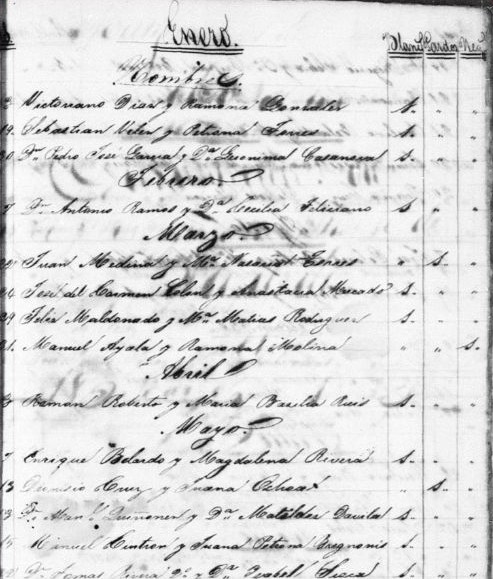 Enero.
Blancos Pardos Neg
Nombres.
Victoriano Dias y Ramona Gonzales 1. " "
19. Sebastian Veles y Petrona Torres 1. " "
30. Dn. Pedro José Garcia y Da. Geronima Casanova 1. " "
Febrero.
7 Dn. Antonio Ramos y Da. Cecilia Feliciano 1. " "
Marzo.
Juan Medina y Ma. Torres " 1. "
24 José del Carmen Colon y Anastacia Mercado 1. " "
29 Felix Maldonado y Ma. Matias Rodriguez 1. " "
31. Manuel Ayala y Ramona Molina " " 1.
Abril
Ramon Roberto y Maria Basilia Ruis 1. " "
Mayo
7 Enrique Belardo y Magdalena Rivera 1. " "
13 Dionicio Cruz y Juana " 1. "
13 Dn. Quiñones y Da. Matilde Davila 1. " "
15 Manuel Cintron y Juana Petrona 1. " "
Dn. Tomas Rivera y Da. Isabel